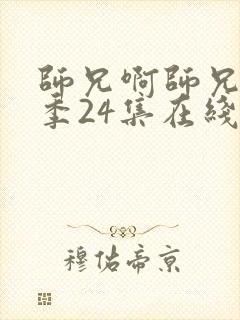 師兄啊師兄
季24集在綫
穆佑帝京